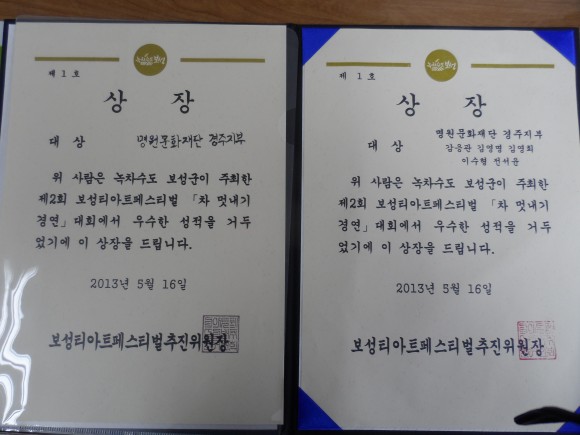 제 1 호
상 장
대 상 명원문화재단 경주지부
위 사람은 녹차수도 보성군이 주최한
제2회 보성티아트페스티벌 「차 멋내기
경연」대회에서 우수한 성적을 거두
었기에 이 상장을 드립니다.
2013년 5월 16일
보성티아트페스티벌추진위원장
제 1 호
상 장
명원문화재단 경주지부
대 상
김영희
이수형
위 사람은 녹차수도 보성군이 주최한
제2회 보성티아트페스티벌 「차 멋내기
경연」대회에서 우수한 성적을 거두
었기에 이 상장을 드립니다.
2013년 5월 16일
보성티아트페스티벌추진위원장